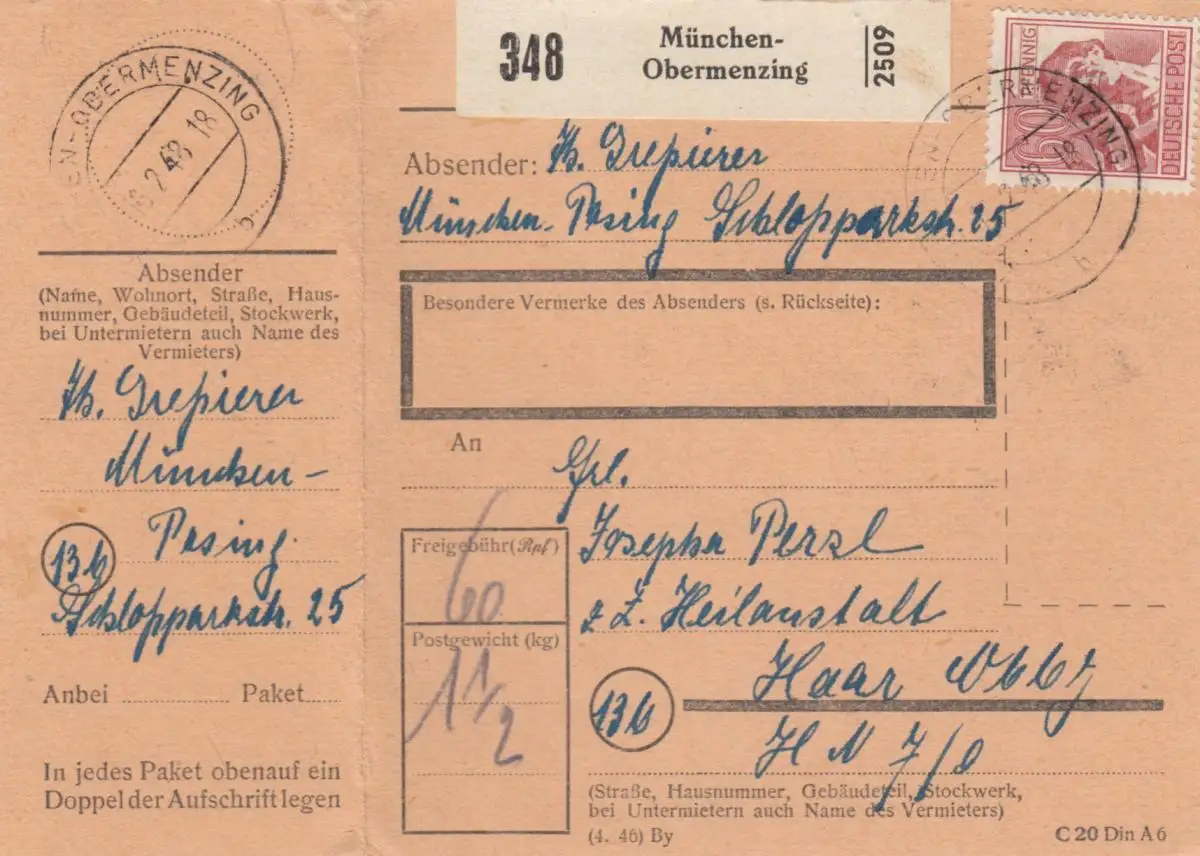 EN-OBERMENZING
2.48 18
b
348
München-
Obermenzing
2509
60 PFENNIG
DEUTSCHE POST
EN-OBERMENZING
2.48 18
b
Absender:
München-Pasing Schloßparkstr. 25
Absender
(Name, Wohnort, Straße, Haus-
nummer, Gebäudeteil, Stockwerk,
bei Untermietern auch Name des
Vermieters)
München-
Pasing
13b
Schloßparkstr. 25
Anbei Paket
In jedes Paket obenauf ein
Doppel der Aufschrift legen
Besondere Vermerke des Absenders (s. Rückseite):
An
Frl.
Josepha Perzl
z. Z. Heilanstalt
Haar
13b
H N 7/0
Freigebühr (Rpf)
60
Postgewicht (kg)
1 1/2
(Straße, Hausnummer, Gebäudeteil, Stockwerk,
bei Untermietern auch Name des Vermieters)
(4. 46) By
C 20 Din A 6